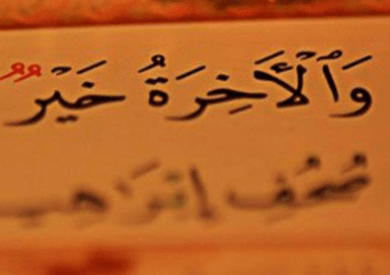 وَٱلْأَخِرَةُ خَيْرٌ
صُحُفِ إِبْرَٰهِيمَ